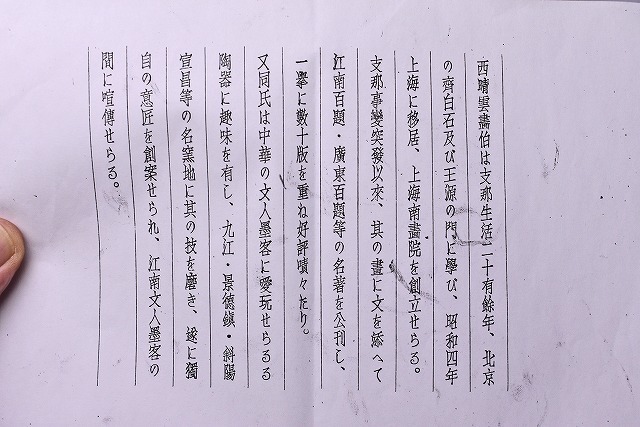 西晴雲畵伯は支那生活二十有餘年、北京
の齊白石及び王源の門に學び、昭和四年
上海に移居、上海南畵院を創立せらる。
支那事變突發以來、其の畫に文を添へて
江南百題・廣東百題等の名著を公刊し、
一擧に數十版を重ね好評嘖々たり。
又同氏は中華の文人墨客に愛玩せらるる
陶器に趣味を有し、九江・景德鎭・斜陽
宣昌等の名窯地に其の技を磨き、遂に獨
自の意匠を創案せられ、江南文人墨客の
間に喧傳せらる。